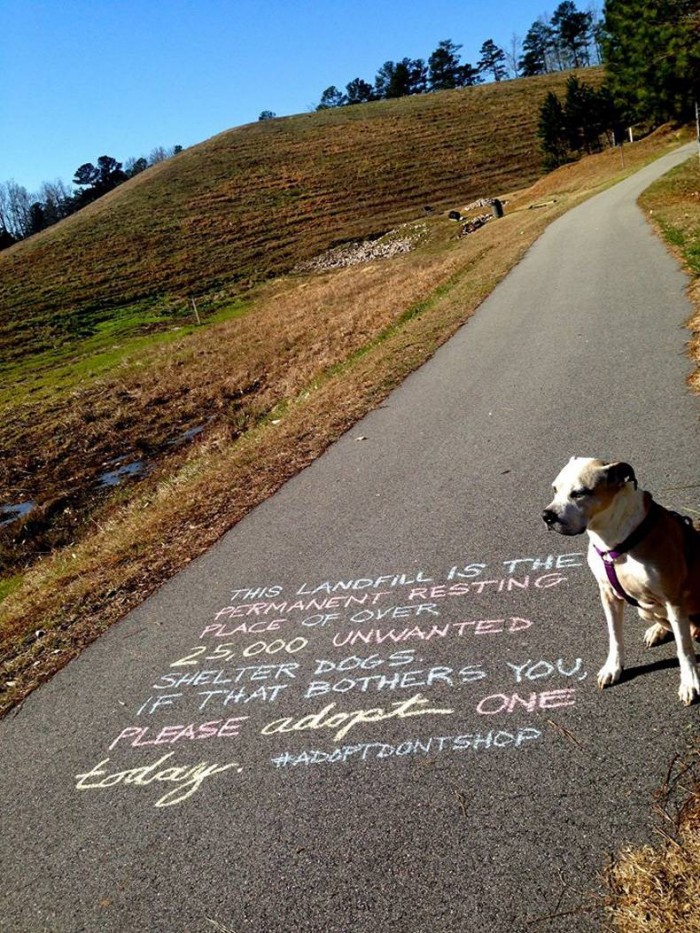 THIS LANDFILL IS THE
PERMANENT RESTING
PLACE OF OVER
25,000 UNWANTED
SHELTER DOGS.
IF THAT BOTHERS YOU,
PLEASE adopt ONE
today. #ADOPTDONTSHOP